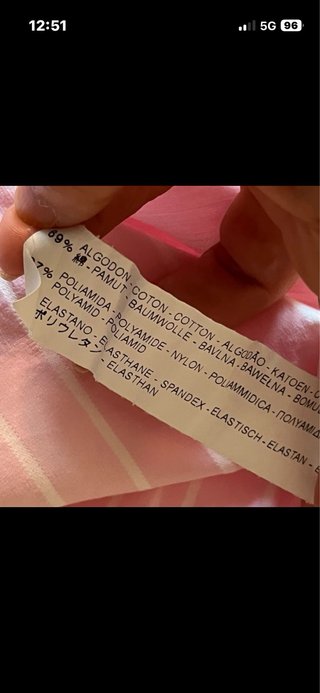 12:51
5G 96
69% ALGODON - COTON - COTTON - ALGODÃO - KATOEN -
綿 - PAMUT - BAUMWOLLE - BAVLNA - BAWEŁNA -
% POLIAMIDA - POLYAMIDE - NYLON - POLIAMMIDICA -
POLYAMID - POLIAMID
ELASTANO - ELASTHANE - SPANDEX - ELASTISCH - ELASTAN -
ポリウレタン - ELASTHAN